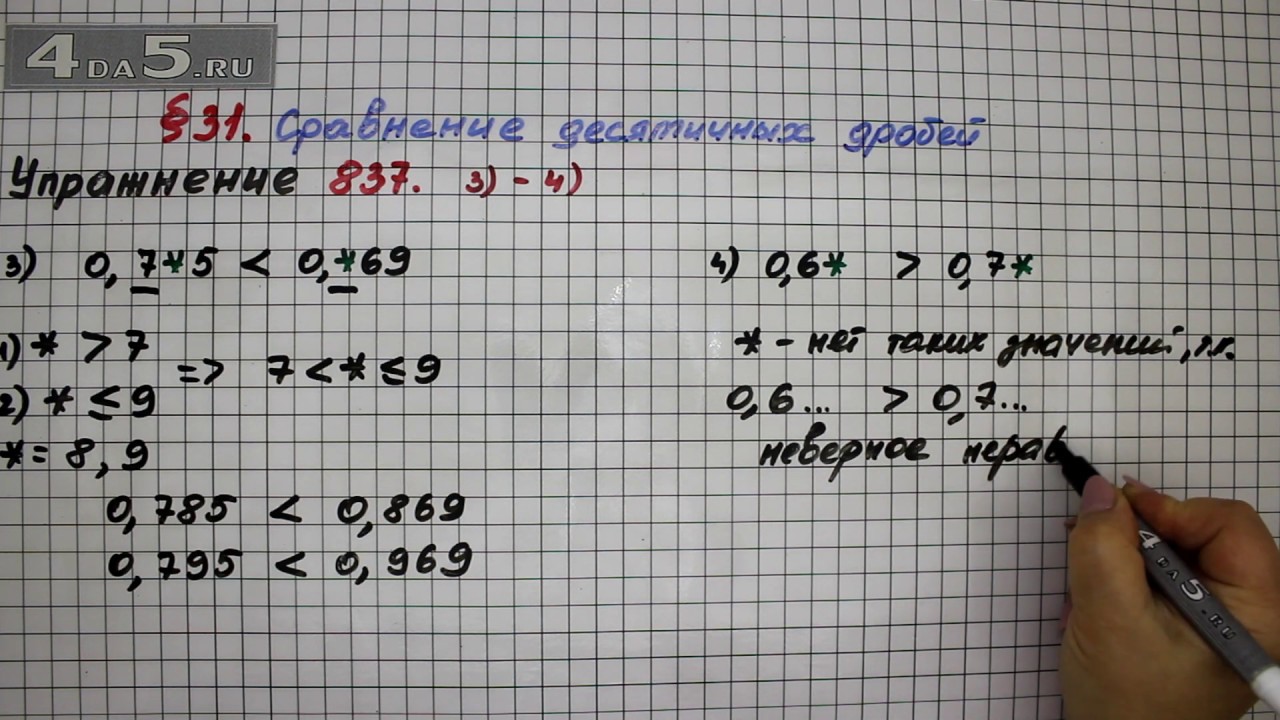 4DA5.RU
§31. Сравнение десятичных дробей
Упражнение 837. 3) - 4)
3) 0,7*5 < 0,*69
1) * > 7
2) * ≤ 9
=> 7 < * ≤ 9
* = 8, 9
0,785 < 0,869
0,795 < 0,969
4) 0,6* > 0,7*
* - нет таких значений, т.к.
0,6... > 0,7...
неверное нерав
4DA5.RU